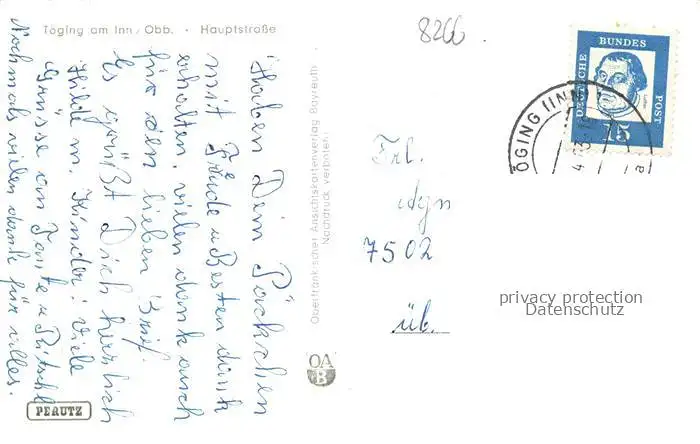 Töging am Inn, Obb. · Hauptstraße
8266
DEUTSCHE BUNDES POST
15
TÖGING (INN)
Haben Dein Päckchen
mit Freude u. Besten dank
erhalten, vielen dank auch
für den lieben Brief.
Es grüßt Dich herzlich
Hilde m. Kinder! Viele
Grüsse an Tante u.
Nochmals vielen dank für alles.
Oberfränkischer Ansichtskartenverlag Bayreuth
Nachdruck verboten!
OA
B
PERUTZ
Frl.
7502
üb.
privacy protection
Datenschutz